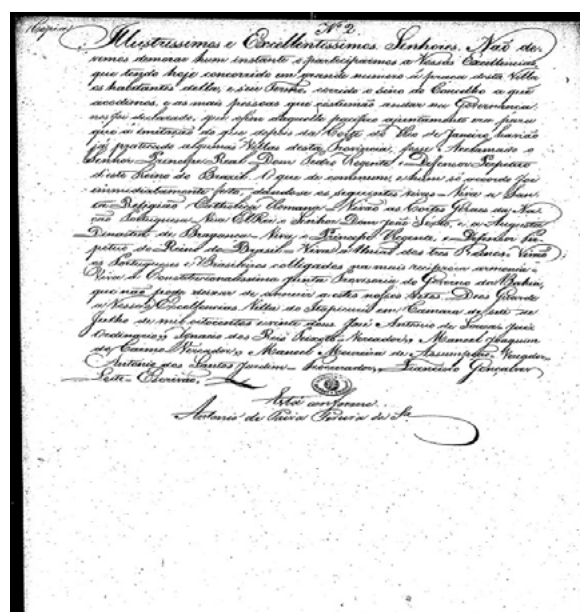 (Copia) Nº 2.
Illustrissimos e Excellentissimos Senhores. Naõ de-
vemos demorar hum instante e participarmos a Vossas Excellencias,
que tendo hoje concorrido em grande numero á praça desta Villa
os habitantes della, e seu Termo, corrido o sino do Concelho a que
acodimos, e as mais pessoas que costumaõ andar na Governança
nos foi declarado, que o fim daquelle pacifico ajuntamento era para
que á imitaçaõ do que depois da Corte do Rio de Janeiro, haviaõ
já praticado algumas Villas desta Provincia, fosse Acclamado o
Senhor Principe Real Dom Pedro Regente e Defensor Perpetuo
d'este Reino do Brazil. O que de commum, e hum só acordo foi
immediatamente feito, dando-se os seguintes vivas = Viva a San-
ta Religiaõ Catholica Romana = Vivaõ as Cortes Geraes da Na-
çaõ Portugueza = Viva ElRei o Senhor Dom Joaõ Sexto, e a Augusta
Dinastia de Bragança = Viva o Principe Regente, e Defensor Per-
petuo do Reino do Brasil = Viva a Uniaõ dos tres Reinos = Vivaõ
os Portuguezes e Brasileiros colligados na mais reciproca armonia =
Viva a Constitucionalissima Junta Provisoria do Governo da Bahia,
que naõ pode deixar de annuir a estes nossos votos. Deos Guarde
a Vossas Excellencias Villa do Itapicurú em Camara de sete de
Julho de mil oitocentos e vinte dous José Antonio de Souza, Juiz
Ordinario, Ignacio dos Reis Peixoto = Vereador, Manoel Joaquim
do Carmo Vereador, Manoel Moreira de Assumpçaõ, Vereador,
Antonio dos Santos Jardim = Procurador, Francisco Gonçalves
Leite = Escrivaõ.
Está conforme.
Antonio de Paiva Pereira da Sª